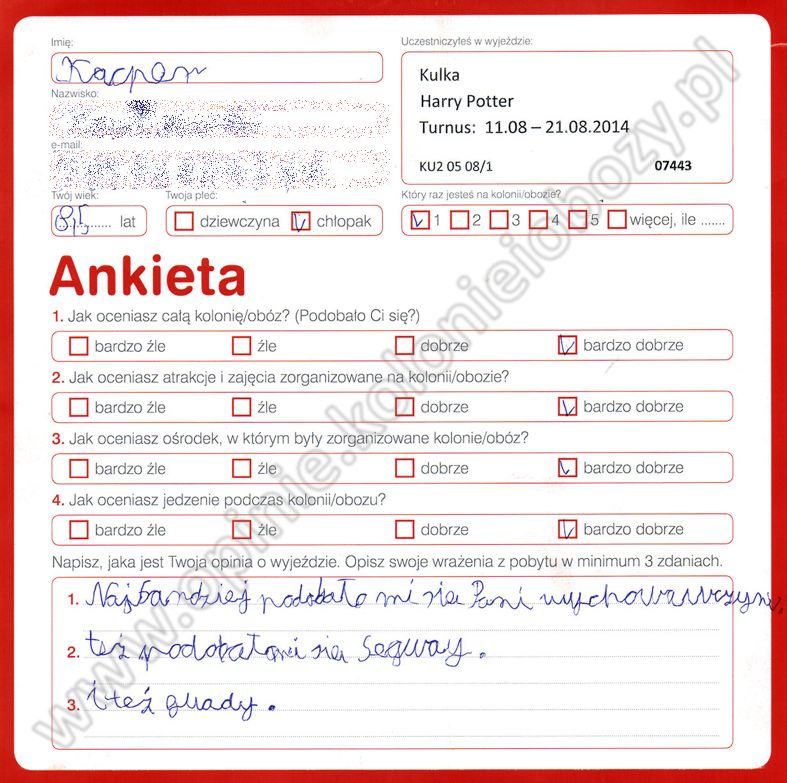 Imię:
Kacper
Uczestniczyłeś w wyjeździe:
Kulka
Harry Potter
Turnus: 11.08 – 21.08.2014
KU2 05 08/1 07443
Nazwisko:
e-mail:
Twój wiek:
8,5 lat
Twoja płeć:
dziewczyna chłopak
Który raz jesteś na kolonii/obozie?
1 2 3 4 5 więcej, ile .......
Ankieta
1. Jak oceniasz całą kolonię/obóz? (Podobało Ci się?)
bardzo źle źle dobrze bardzo dobrze
2. Jak oceniasz atrakcje i zajęcia zorganizowane na kolonii/obozie?
bardzo źle źle dobrze bardzo dobrze
3. Jak oceniasz ośrodek, w którym były zorganizowane kolonie/obóz?
bardzo źle źle dobrze bardzo dobrze
4. Jak oceniasz jedzenie podczas kolonii/obozu?
bardzo źle źle dobrze bardzo dobrze
Napisz, jaka jest Twoja opinia o wyjeździe. Opisz swoje wrażenia z pobytu w minimum 3 zdaniach.
1. Najbardziej podobało mi sie Pani
2. też podobało mi sie segway.
3. i też quady.
www.opinie.kolonieiobozy.pl